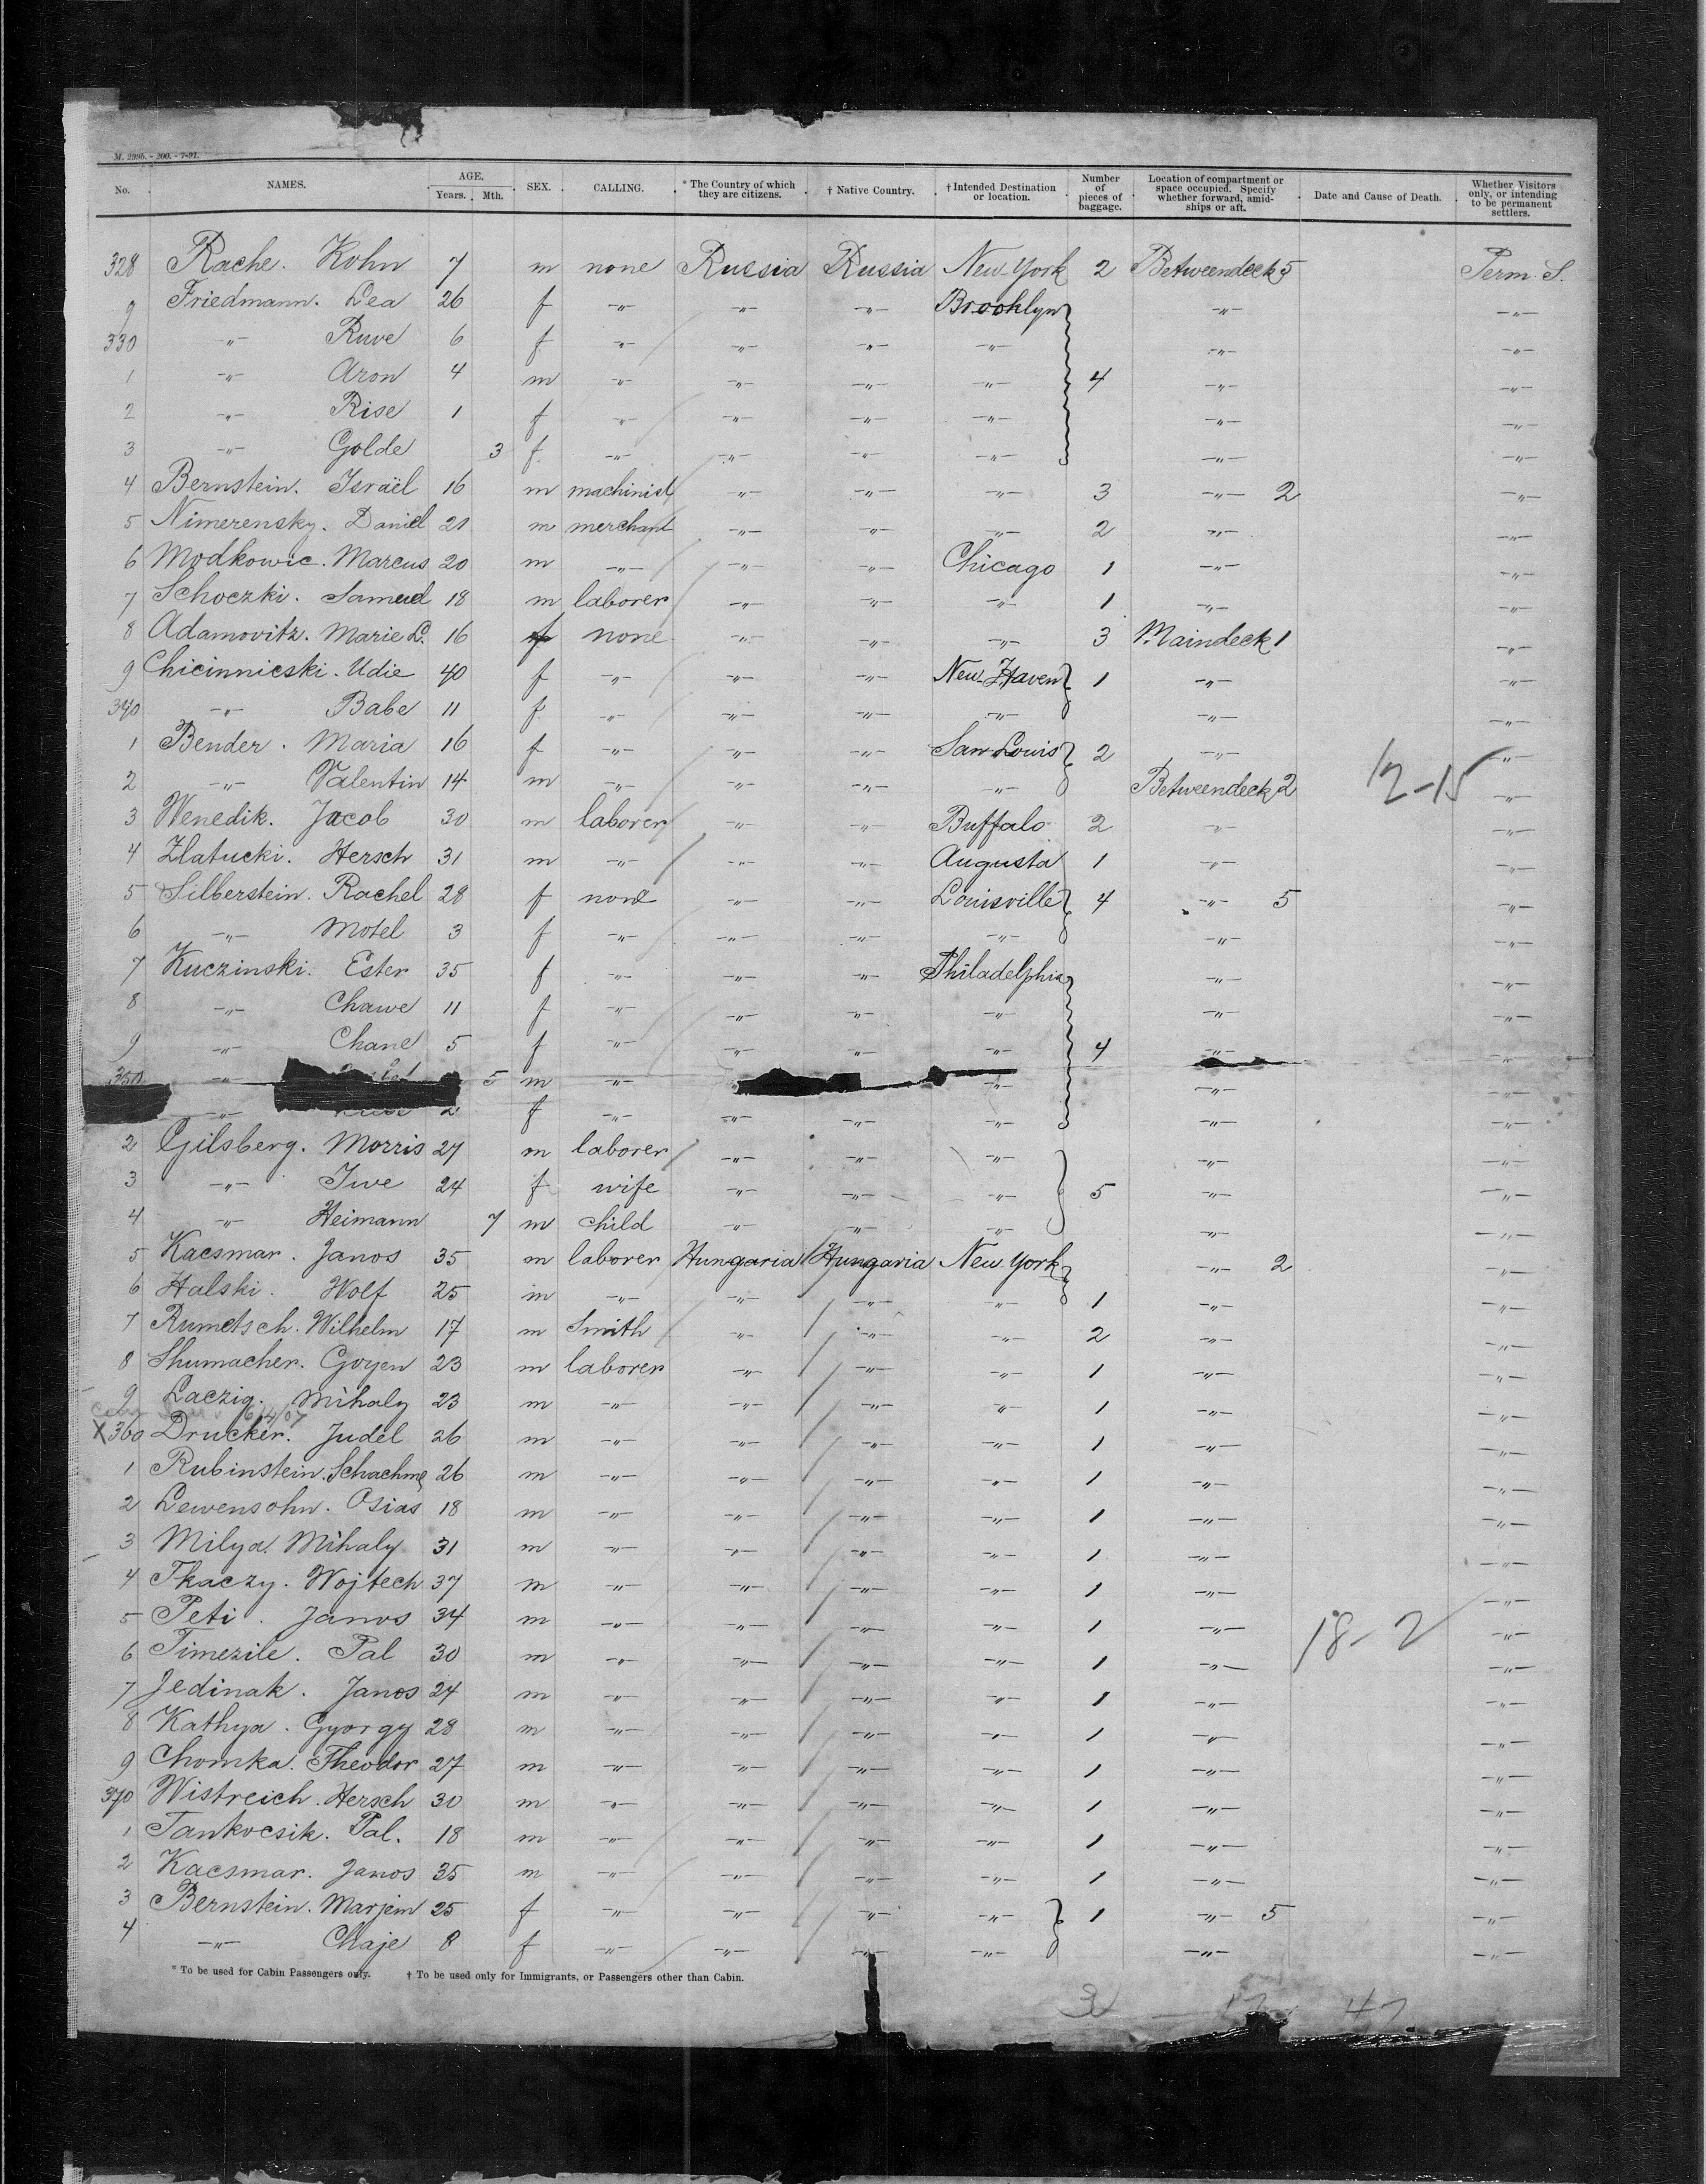 M. 299b. - 200. - 7-91.
No. NAMES. AGE. Years. Mth. SEX. CALLING. * The Country of which they are citizens. † Native Country. † Intended Destination or location. Number of pieces of baggage. Location of compartment or space occupied. Specify whether forward, amidships or aft. Date and Cause of Death. Whether Visitors only, or intending to be permanent settlers.
328 Rache. Kohn 7 m none Russia Russia New-York 2 Betweendeck 5 Perm. S.
9 Friedmann. Lea 26 f -"- -"- -"- Brooklyn -"- -"-
330 -"- Ruve 6 f -"- -"- -"- -"- -"- -"-
1 -"- Aron 4 m -"- -"- -"- -"- 4 -"- -"-
2 -"- Rise 1 f -"- -"- -"- -"- -"- -"-
3 -"- Golde 3 f. -"- -"- -"- -"- -"- -"-
4 Bernstein. Israël 16 m machinist -"- -"- -"- 3 -"- 2 -"-
5 Nimerensky. Daniel 21 m merchant -"- -"- -"- 2 -"- -"-
6 Modkowic. Marcus 20 m -"- -"- -"- Chicago 1 -"- -"-
7 Schoczki. Samuel 18 m laborer -"- -"- -"- 1 -"- -"-
8 Adamovitz. Marie L. 16 f none -"- -"- -"- 3 Maindeck 1 -"-
9 Chicinnicski. Udie 40 f -"- -"- -"- New-Haven 1 -"- -"-
340 -"- Babe 11 f -"- -"- -"- -"- -"- -"-
1 Bender. Maria 16 f -"- -"- -"- San Louis 2 -"- -"-
2 -"- Valentin 14 m -"- -"- -"- -"- Betweendeck 2 12-15 -"-
3 Wenedik. Jacob 30 m laborer -"- -"- Buffalo 2 -"- -"-
4 Zlatucki. Hersch 31 m -"- -"- -"- Augusta 1 -"- -"-
5 Silberstein. Rachel 28 f none -"- -"- Louisville 4 -"- 5 -"-
6 -"- Motel 3 f -"- -"- -"- -"- -"- -"-
7 Kuczinski. Ester 35 f -"- -"- -"- Philadelphia -"- -"-
8 -"- Chawe 11 f -"- -"- -"- -"- -"- -"-
9 -"- Chane 5 f -"- -"- -"- -"- 4 -"- -"-
350 -"- 5 m -"- -"- -"- -"-
-"- 2 f -"- -"- -"- -"- -"- -"-
2 Gilsberg. Morris 27 m laborer -"- -"- -"- -"- -"-
3 -"- Iwe 24 f wife -"- -"- -"- 5 -"- -"-
4 -"- Heimann 7 m child -"- -"- -"- -"- -"-
5 Kacsmar. Janos 35 m laborer Hungaria Hungaria New York -"- 2 -"-
6 Halski. Wolf 25 m -"- -"- -"- -"- 1 -"- -"-
7 Rumetsch. Wilhelm 17 m Smith -"- -"- -"- 2 -"- -"-
8 Shumacher. Goyen 23 m laborer -"- -"- -"- 1 -"- -"-
9 Laczig. Mihaly 23 m -"- -"- -"- -"- 1 -"- -"-
6/4/07
X 360 Drucker. Judel 26 m -"- -"- -"- -"- 1 -"- -"-
1 Rubinstein. Schachme 26 m -"- -"- -"- -"- 1 -"- -"-
2 Lewensohn. Osias 18 m -"- -"- -"- -"- 1 -"- -"-
3 Milya. Mihaly 31 m -"- -"- -"- -"- 1 -"- -"-
4 Tkaczy. Wojtech 37 m -"- -"- -"- -"- 1 -"- -"-
5 Peti. Janos 34 m -"- -"- -"- -"- 1 -"- 18-2 -"-
6 Timezile. Pal 30 m -"- -"- -"- -"- 1 -"- -"-
7 Jedinak. Janos 24 m -"- -"- -"- -"- 1 -"- -"-
8 Kathya. Gyorgy 28 m -"- -"- -"- -"- 1 -"- -"-
9 Chomka. Theodor 27 m -"- -"- -"- -"- 1 -"- -"-
370 Wistreich. Hersch 30 m -"- -"- -"- -"- 1 -"- -"-
1 Tankocsik. Pal. 18 m -"- -"- -"- -"- 1 -"- -"-
2 Kacsmar. Janos 35 m -"- -"- -"- -"- 1 -"- -"-
3 Bernstein. Marjem 25 f -"- -"- -"- -"- 1 -"- 5 -"-
4 -"- Chaje 8 f -"- -"- -"- -"- -"- -"-
* To be used for Cabin Passengers only. † To be used only for Immigrants, or Passengers other than Cabin.
3 17 47